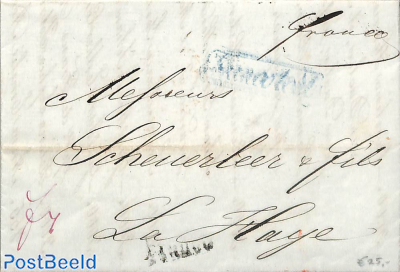 franco
Messieurs
Scheurleer & fils
La Haye
FRANCO
€25,-
PostBeeld